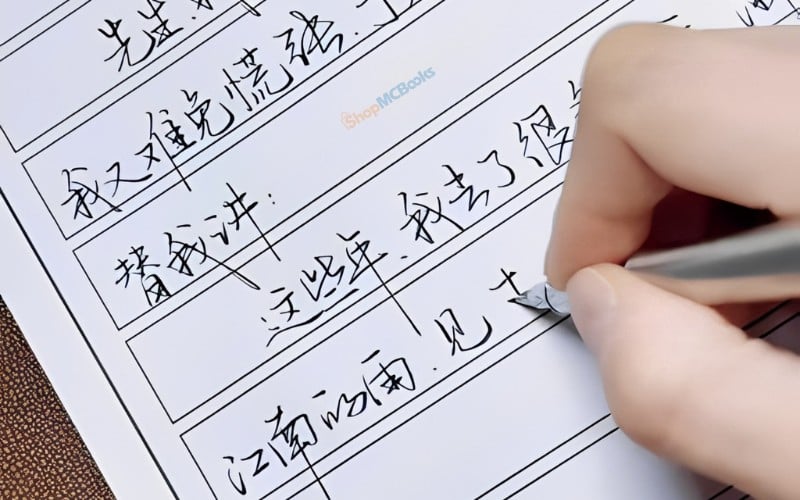 先生
我又难免慌张.
替我讲:
这些年.我去了很
江南的雨.见
ShopMCBooks